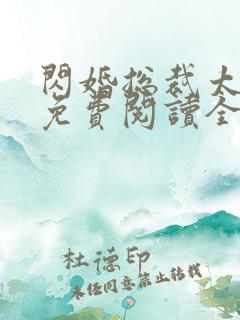 閃婚總裁大
免費閱讀全
杜德印
未經同意禁止轉載